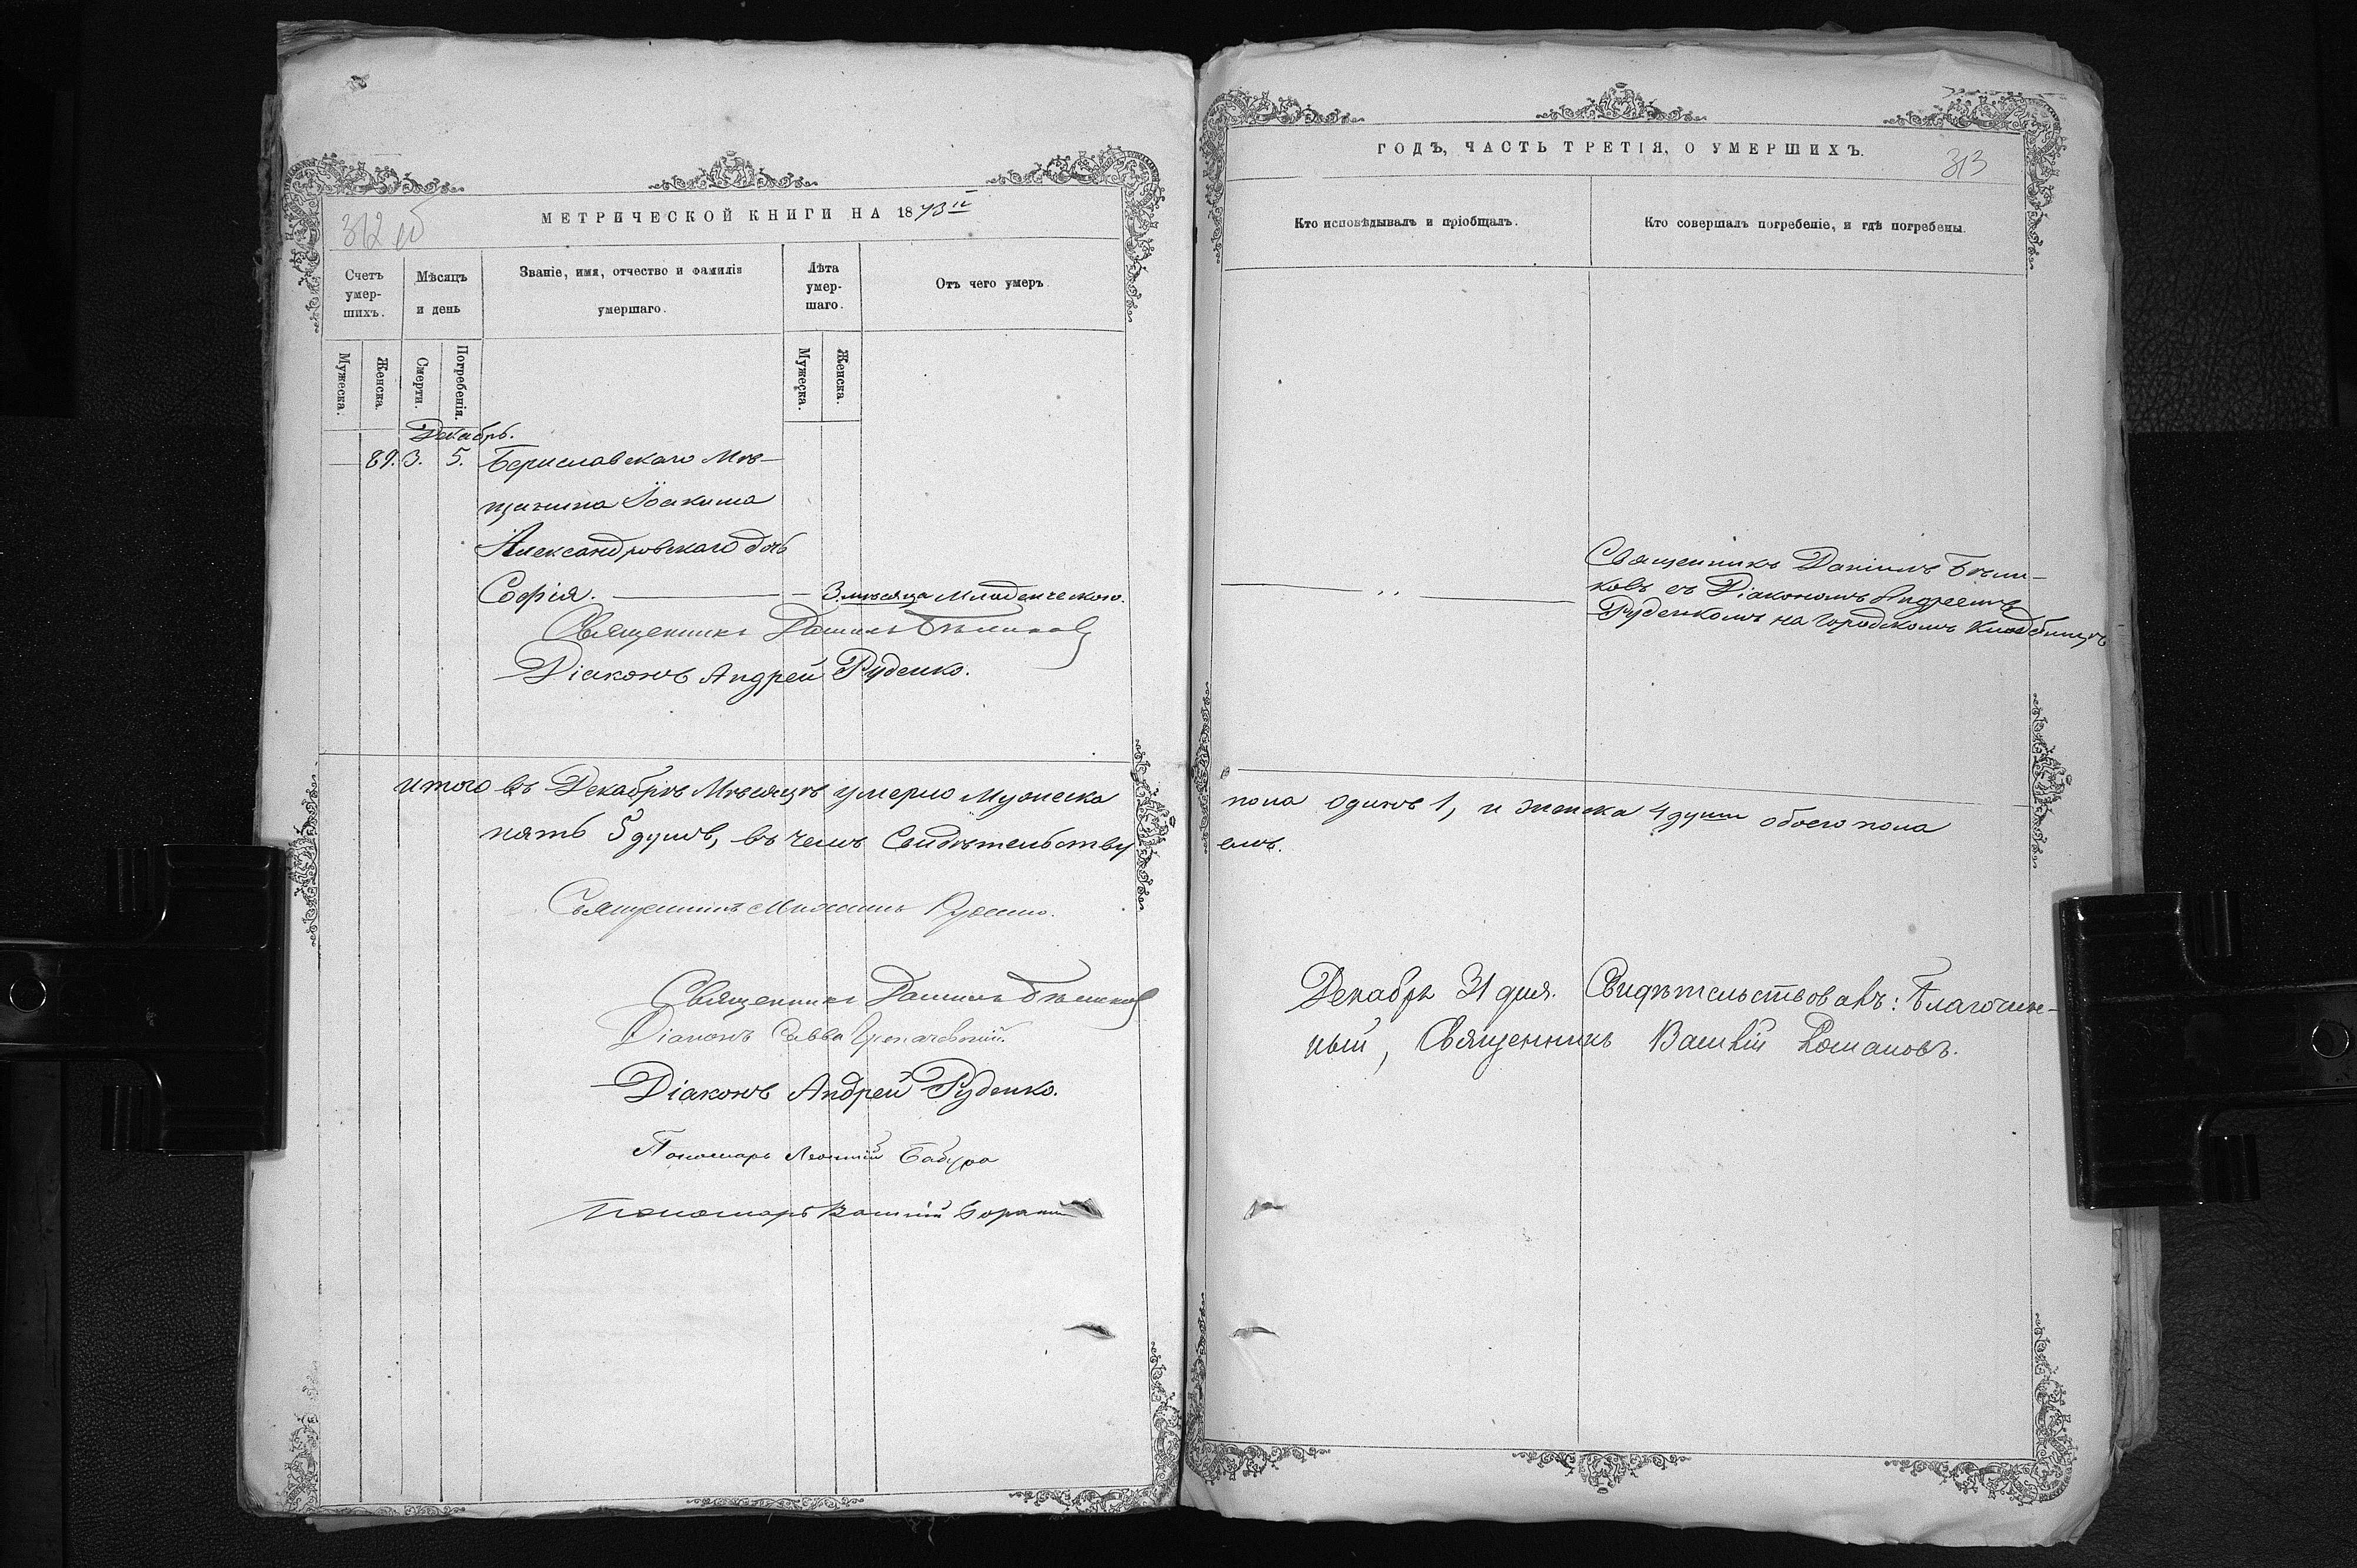 312 об
МЕТРИЧЕСКОЙ КНИГИ НА 1873й
Счетъ умер-шихъ.
Мѣсяцъ и день
Званіе, имя, отчество и фамилія умершаго.
Лѣта умер-шаго.
Отъ чего умеръ
Мужеска.
Женска
Смерти.
Погребенія.
Мужеска.
Женска.
Декабрь.
89. 3. 5. Бериславскаго Мѣ-
щанина Іоакима
Александровскаго дочь
Софія. 3 мѣсяца Младенческою.
Священникъ Даніилъ Бѣликовъ
Діаконъ Андрей Руденко.
итого въ Декабрѣ Мѣсяцѣ умерло Мужеска
пять 5 душъ, въ чемъ Свидѣтельству
Священникъ
Священникъ Даніилъ Бѣликовъ
Діаконъ Савва
Діаконъ Андрей Руденко.
Пономарь Леонтій Бабура
Пономарь
ГОДЪ, ЧАСТЬ ТРЕТІЯ, О УМЕРШИХЪ.
313
Кто исповѣдывалъ и пріобщалъ.
Кто совершалъ погребеніе, и гдѣ погребены.
Священникъ Даніилъ Бѣли-
ковъ съ Діакономъ Андреемъ
Руденкомъ на Городскомъ Кладбищѣ
пола одинъ 1, и женска 4 души обоего пола
емъ.
Декабря 31 дня. Свидѣтельствовалъ: Благочин-
ный, Священникъ Василій Романовъ.